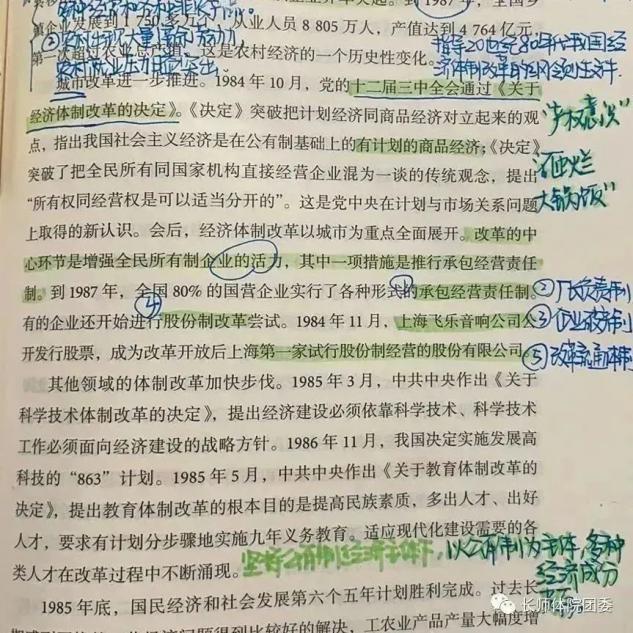 镇企业发展到 1 750 多万个，从业人员 8 805 万人，产值达到 4 764 亿元，
第一次超过农业总产值。这是农村经济的一个历史性变化。
指导20世纪80年代我国经
济体制改革的纲领性文件.
城市改革进一步推进。1984 年 10 月，党的十二届三中全会通过《关于
经济体制改革的决定》。《决定》突破把计划经济同商品经济对立起来的观
"产权意识"
点，指出我国社会主义经济是在公有制基础上的有计划的商品经济；《决定》
突破了把全民所有同国家机构直接经营企业混为一谈的传统观念，提出
大锅饭"
“所有权同经营权是可以适当分开的”。这是党中央在计划与市场关系问题
上取得的新认识。会后，经济体制改革以城市为重点全面展开。改革的中
心环节是增强全民所有制企业的活力，其中一项措施是推行承包经营责任
制。到 1987 年，全国 80% 的国营企业实行了各种形式的承包经营责任制。
①
② 厂长负责制
④
有的企业还开始进行股份制改革尝试。1984 年 11 月，上海飞乐音响公司公
③ 企业破产制
开发行股票，成为改革开放后上海第一家试行股份制经营的股份有限公司。
⑤ 改革流通体制
其他领域的体制改革加快步伐。1985 年 3 月，中共中央作出《关于
科学技术体制改革的决定》，提出经济建设必须依靠科学技术、科学技术
工作必须面向经济建设的战略方针。1986 年 11 月，我国决定实施发展高
科技的“863”计划。1985 年 5 月，中共中央作出《关于教育体制改革的
决定》，提出教育体制改革的根本目的是提高民族素质，多出人才、出好
人才，要求有计划分步骤地实施九年义务教育。适应现代化建设需要的各
类人才在改革过程中不断涌现。
以公有制为主体，多种
经济成分
1985 年底，国民经济和社会发展第六个五年计划胜利完成。过去长
长师体院团委